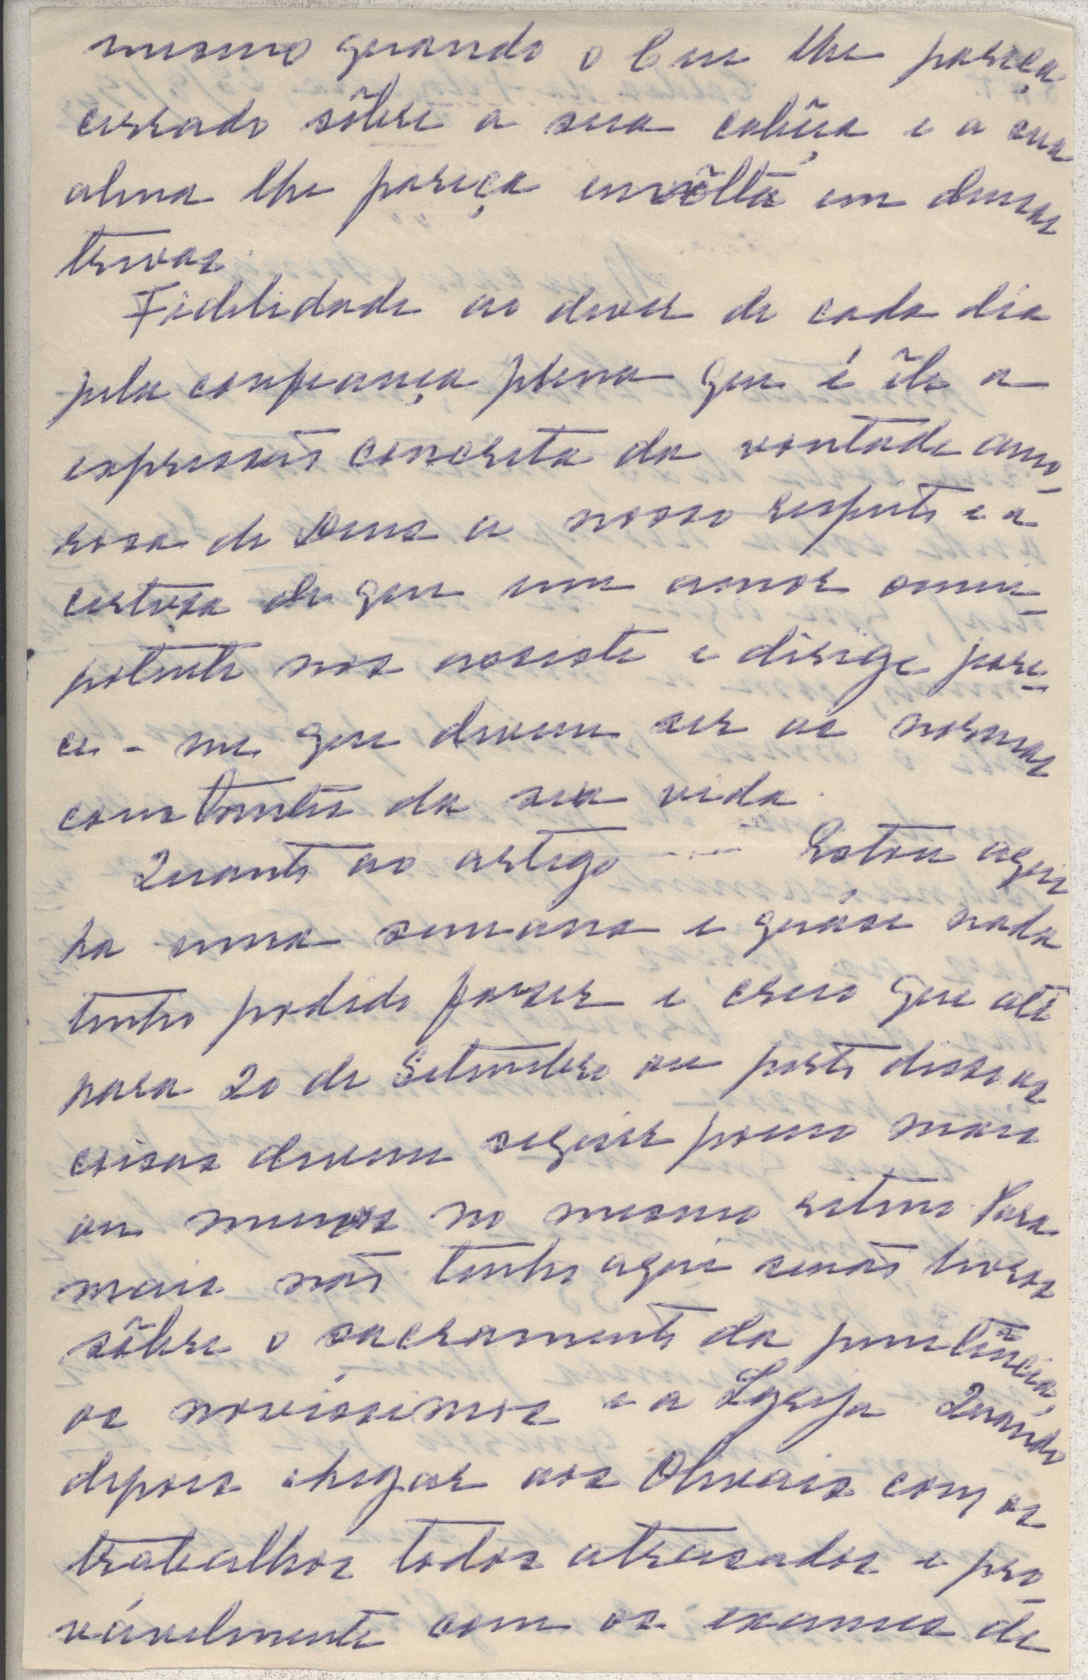 mesmo quando o Ceu lhe pareça
cerrado sôbre a sua cabêça e a sua
alma lhe pareça envôlta em densas
trevas.
Fidelidade ao dever de cada dia
pela confiança plena que é êle a
expressão concreta da vontade amo-
rosa de Deus a nosso respeito e a
certeza de que um amor omni-
potente nos assiste e dirige pare-
ce-me que devem ser as normas
constantes da sua vida.
Quanto ao artigo ..... Estou aqui
ha uma semana e quási nada
tenho podido fazer e creio que até
para 20 de Setembro ou perto disso as
coisas devem seguir pouco mais
ou menos no mesmo ritmo. Para
mais não tenho aqui senão livros
sôbre o sacramento da penitência,
os novissimos e a Igreja. Quando
depois chegar aos Olivais com os
trabalhos todos atrasados e pro-
vávelmente com os exames de